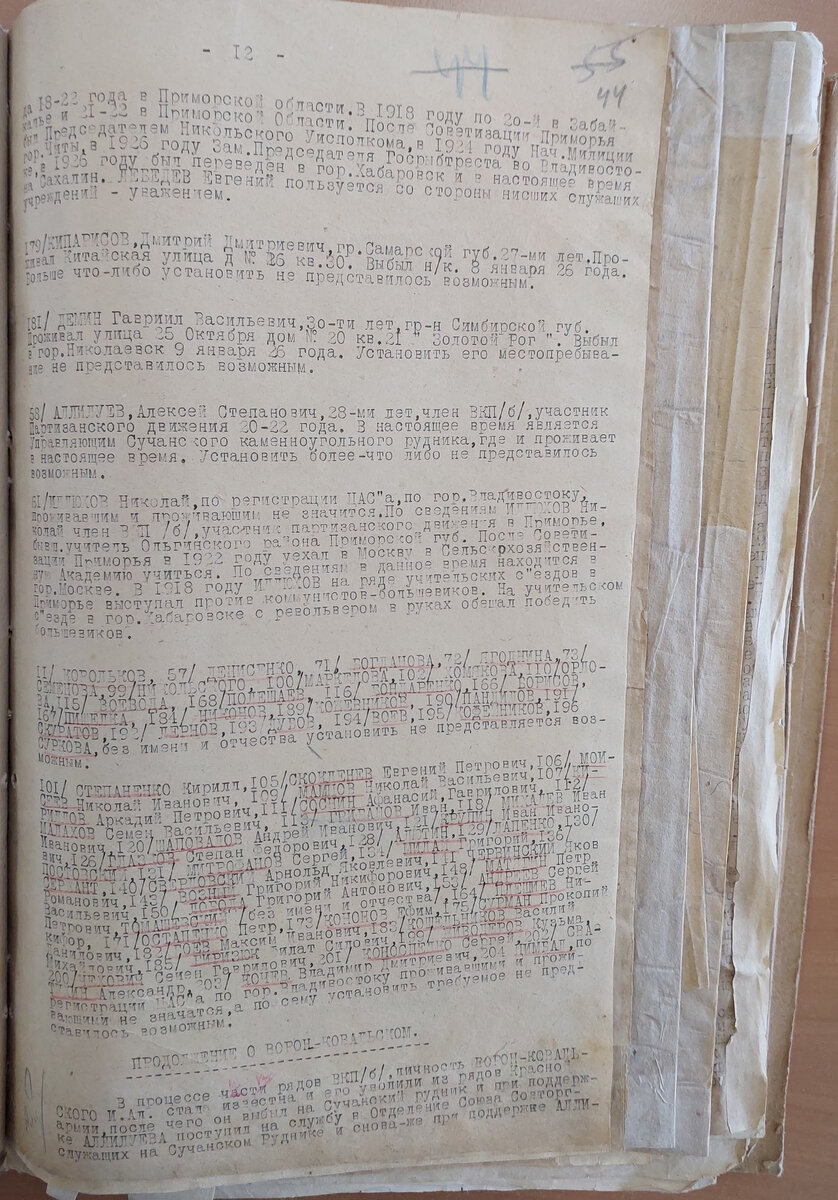 - 12 -
55
44
да 18-22 года в Приморской области.В 1918 году по 2о-й в Забай-
калье и 21-22 в Приморской Области. После Советизации Приморья
был Председателем Никольского Уисполкома, в 1924 году Нач.Милиции
гор.Читы, в 1926 году Зам.Председателя Госрыбтреста во Владивосто-
ке, в 1926 году был переведен в гор.Хабаровск и в настоящее время
на Сахалин. ЛЕБЕДЕВ Евгений пользуется со стороны нисших служаших
учреждений - уважением.
179/КИПАРИСОВ,Дмитрий Дмитриевич,гр.Самарской губ.27-ми лет.Про-
живал Китайская улица д № 26 кв.30. Выбыл н/к. 8 января 26 года.
Больше что-либо установить не представилось возможным.
181/ ДЕМИН Гавриил Васильевич,3о-ти лет,гр-н Симбирской губ.
Проживал улица 25 Октября дом № 20 кв.21 " Золотой Рог ". Выбыл
в гор.Николаевск 9 января 26 года. Установить его местопребыва-
ние не представилось возможным.
58/ АЛЛИЛУЕВ,Алексей Степанович,28-ми лет,член ВКП/б/,участник
Партизанского движения 20-22 года. В настоящее время является
Управляющим Сучанского каменноугольного рудника,где и проживает
в настоящее время. Установить более-что либо не представилось
возможным.
61/ИЛЮХОВ Николай,по регистрации ЦАС"а,по гор.Владивостоку,
проживавшим и проживаюшим не значится.По сведениям ИЛЮХОВ Ни-
колай член ВКП /б/,участник партизанского движения в Приморье,
бывш.учитель Ольгинского района Приморской губ. После Совети-
зации Приморья в 1922 году уехал в Москву в Сельскохозяйствен-
ную Академию учиться. По сведениям в данное время находится в
гор.Москве. В 1918 году ИЛЮХОВ на ряде учительских с"ездов в
Приморье выступал против коммунистов-большевиков. На учительском
с"езде в гор.Хабаровске с револьвером в руках обешал победить
большевиков.
11/ КОРОЛЬКОВ, 57/ ДЕНИСЕНКО, 71/ БОГДАНОВА,72/ ЯГОДИНА,73/
СЕМЕНОВА,99/НИКОЛЬСКОГО, 100/МАРКЕЛОВА,102/ КОМЯКОВА,110/ОРЛО-
ВА,115/ ВОЕВОДА, 168/ПОЛЕШАЕВ, 116/ БОНДАРЕНКО,166/ БОРИСОВ,
167/ПИШЕЛКА, 184/ НИКОНОВ,189/КОШЕВНИКОВ, 190/ПАНФИЛОВ,191/
СКУРАТОВ,192/ ДЕРНОВ,193/ДУБОВ, 194/БОЕВ,195/КОЖЕВНИКОВ,196
СУРКОВА,без имени и отчества установить не представляется воз-
можным.
101/ СТЕПАНЕНКО Кирилл,105/ Евгений Петрович,106/ МОИ-
СЕЕВ Николай Иванович, 109/ Николай Васильевич,107/
Аркадий Петрович,111/ Афанасий,Гаврилович,112/
МАЛАХОВ Семен Васильевич, 113/ Иван,118/ Иван
Иванович,120/ШАПОВАЛОВ Андрей Иванович,121/ Иван Ивано-
вич,126/ Степан Федорович,128/ 129/ЛАПЕНКО,130/
131/ МИТРОФАНОВ Сергей,134/ Григорий,136/
140/СВЕРДЛОВСКИЙ Арнольд Яковлевич,141 Яков
Романович,143/ Григорий Никифорович,148/ Петр
Васильевич,150/ Григорий Антонович, АНДРЕЕВ Сергей
Петрович,ТОМАШЕВСКИЙ /без имени и отчества/,164/ Ни-
кифор, 171/ОСТАПЕНКО Петр,173/КОНОНОВ Ефим,175/ Прокопий
Данилович,182/БОЕВ Максим Иванович,183/ Василий
Михайлович,185/ Филат Силович, Кузьма
200/ Семен Гаврилович,201/ Сергей,202/ СВА-
Александр,203/ Владимир Дмитриевич,204 ЦИМБАЛ,по
регистрации ЦАС"а по гор.Владивостоку проживавшими и прожи-
вающими не значатся,а по сему установить требуемое не пред-
ставилось возможным.
ПРОДОЛЖЕНИЕ О ВОРОН-КОВАЛЬСКОМ.
В процессе части рядов ВКП/б/.личность ВОРОН-КОВАЛЬ-
СКОГО И.Ал. стала известна и его уволили из рядов Красной
армии,после чего он выбыл на Сучанский рудник и при поддерж-
ке АЛЛИЛУЕВА поступил на службу в Отделение Союза Совторг-
служащих на Сучанском Руднике и снова-же при поддержке АЛЛИ-